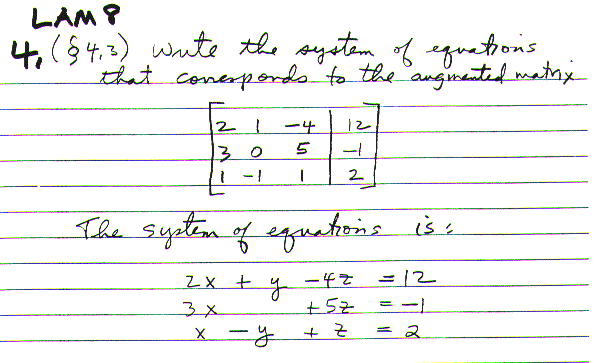 LAM 8
4, (§ 4,3) Write the system of equations
that corresponds to the augmented matrix
2 1 -4 | 12
3 0 5 | -1
1 -1 1 | 2
The system of equations is:
2x + y -4z = 12
3x +5z = -1
x - y + z = 2